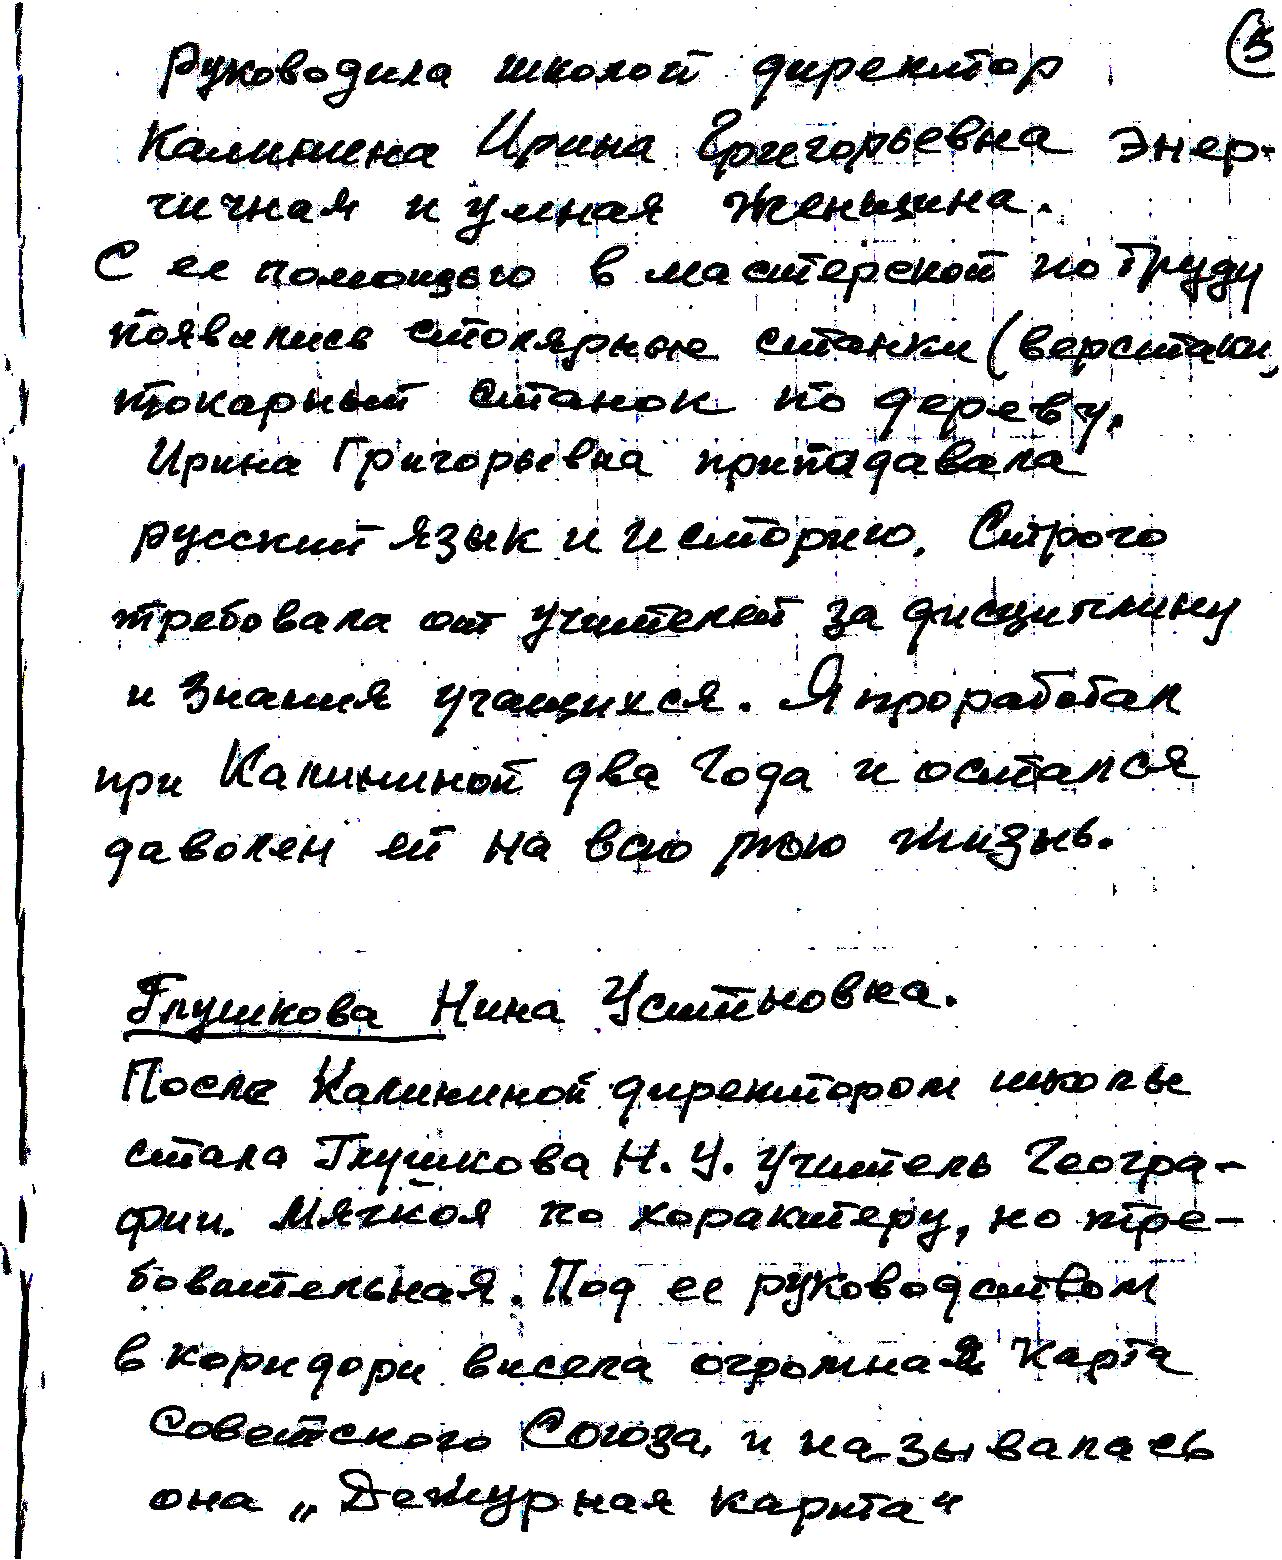 5
Руководила школой директор
Калинина Ирина Григорьевна Энер-
гичная и умная женщина.
С ее помощью в мастерской по труду
появились столярные станки (верстаки,
токарный станок по дереву.
Ирина Григорьевна приподавала
русский язык и историю. Строго
требовала от учителей за дисциплину
и знания учащихся. Я проработал
при Калининой два года и остался
даволен ей на всю мою жизнь.
Глушкова Нина Устиновна.
После Калининой директором школы
стала Глушкова Н. У. Учитель Геогра-
фии. Мягкоя по характеру, но тре-
бовательная. Под ее руководством
в коридори висела огромная карта
Советского Союза, и называлась
она „Дежурная карта"